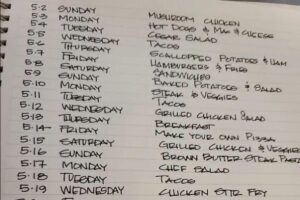 5-2 SUNDAY MUSHROOM CHICKEN
5-3 MONDAY HOT DOGS & MAC & CHEESE
5-4 TUESDAY CESAR SALAD
5-5 WEDNESDAY TACOS
5-6 THURSDAY SCALLOPPED POTATOES & HAM
5-7 FRIDAY HAMBURGERS & FRIES
5-8 SATURDAY SANDWICHES
5-9 SUNDAY BAKED POTATOES & SALAD
5-10 MONDAY STEAK & VEGGIES
5-11 TUESDAY TACOS
5-12 WEDNESDAY GRILLED CHICKEN SALAD
5-13 THURSDAY BREAKFAST
5-14 FRIDAY MAKE YOUR OWN PIZZA
5-15 SATURDAY GRILLED CHICKEN & VEGGIES
5-16 SUNDAY BROWN BUTTER STEAK PAST
5-17 MONDAY CHEF SALAD
5-18 TUESDAY TACOS
5-19 WEDNESDAY CHICKEN STIR FRY